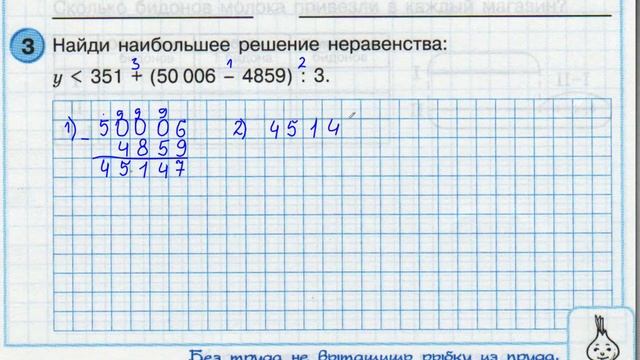 Сколько бидонов молока привезли в каждый магазин?
3 Найди наибольшее решение неравенства:
3 1 2
y < 351 + (50 006 − 4859) : 3.
9 9 9
1) − 50006 2) 4514
4859
45147
Без труда не вытащишь рыбку из пруда.